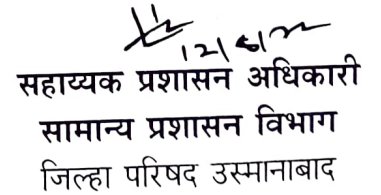 सहाय्यक प्रशासन अधिकारी
सामान्य प्रशासन विभाग
जिल्हा परिषद उस्मानाबाद